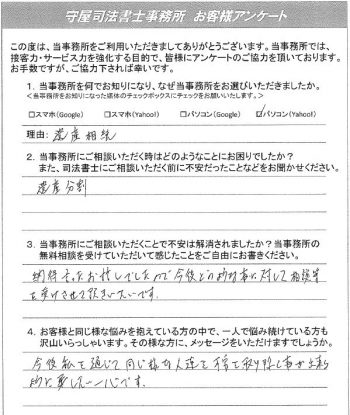 守屋司法書士事務所 お客様アンケート
この度は、当事務所をご利用いただきましてありがとうございます。当事務所では、
接客力・サービス力を強化する目的で、皆様にアンケートのご協力を頂いております。
お手数ですが、ご協力下されば幸いです。
1. 当事務所を何でお知りになり、なぜ当事務所をお選びいただきましたか。
<当事務所をお知りになった媒体のチェックボックスにチェックをお願いいたします。>
□スマホ(Google) □スマホ(Yahoo!) □パソコン(Google) ☑パソコン(Yahoo!)
理由: 遺産相続
2. 当事務所にご相談いただく時はどのようなことにお困りでしたか?
また、司法書士にご相談いただく前に不安だったことなどをお聞かせください。
遺産分割
3. 当事務所にご相談いただくことで不安は解消されましたか?当事務所の
無料相談を受けていただいて感じたことをご自由にお書きください。
お話しでしたので今後 対して相談等
を受けさせて頂きたいです。
4. お客様と同じ様な悩みを抱えている方の中で、一人で悩み続けている方も
沢山いらっしゃいます。その様な方に、メッセージをいただけますでしょうか。
今後私を通じて同じ様な人達を
一心です。